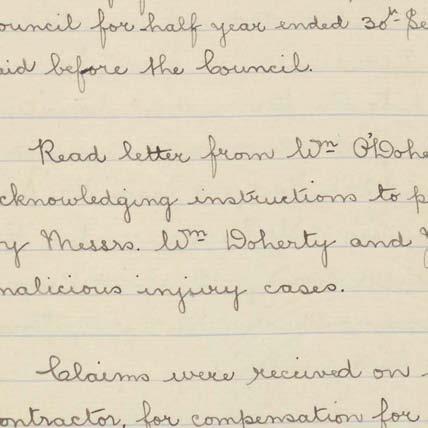 ouncil for half year ended 30th Se
aid before the Council.
Read letter from Wm O'Dohe
cknowledging instructions to p
y Messrs. Wm Doherty and
malicious injury cases.
Claims were received on
ontractor, for compensation for